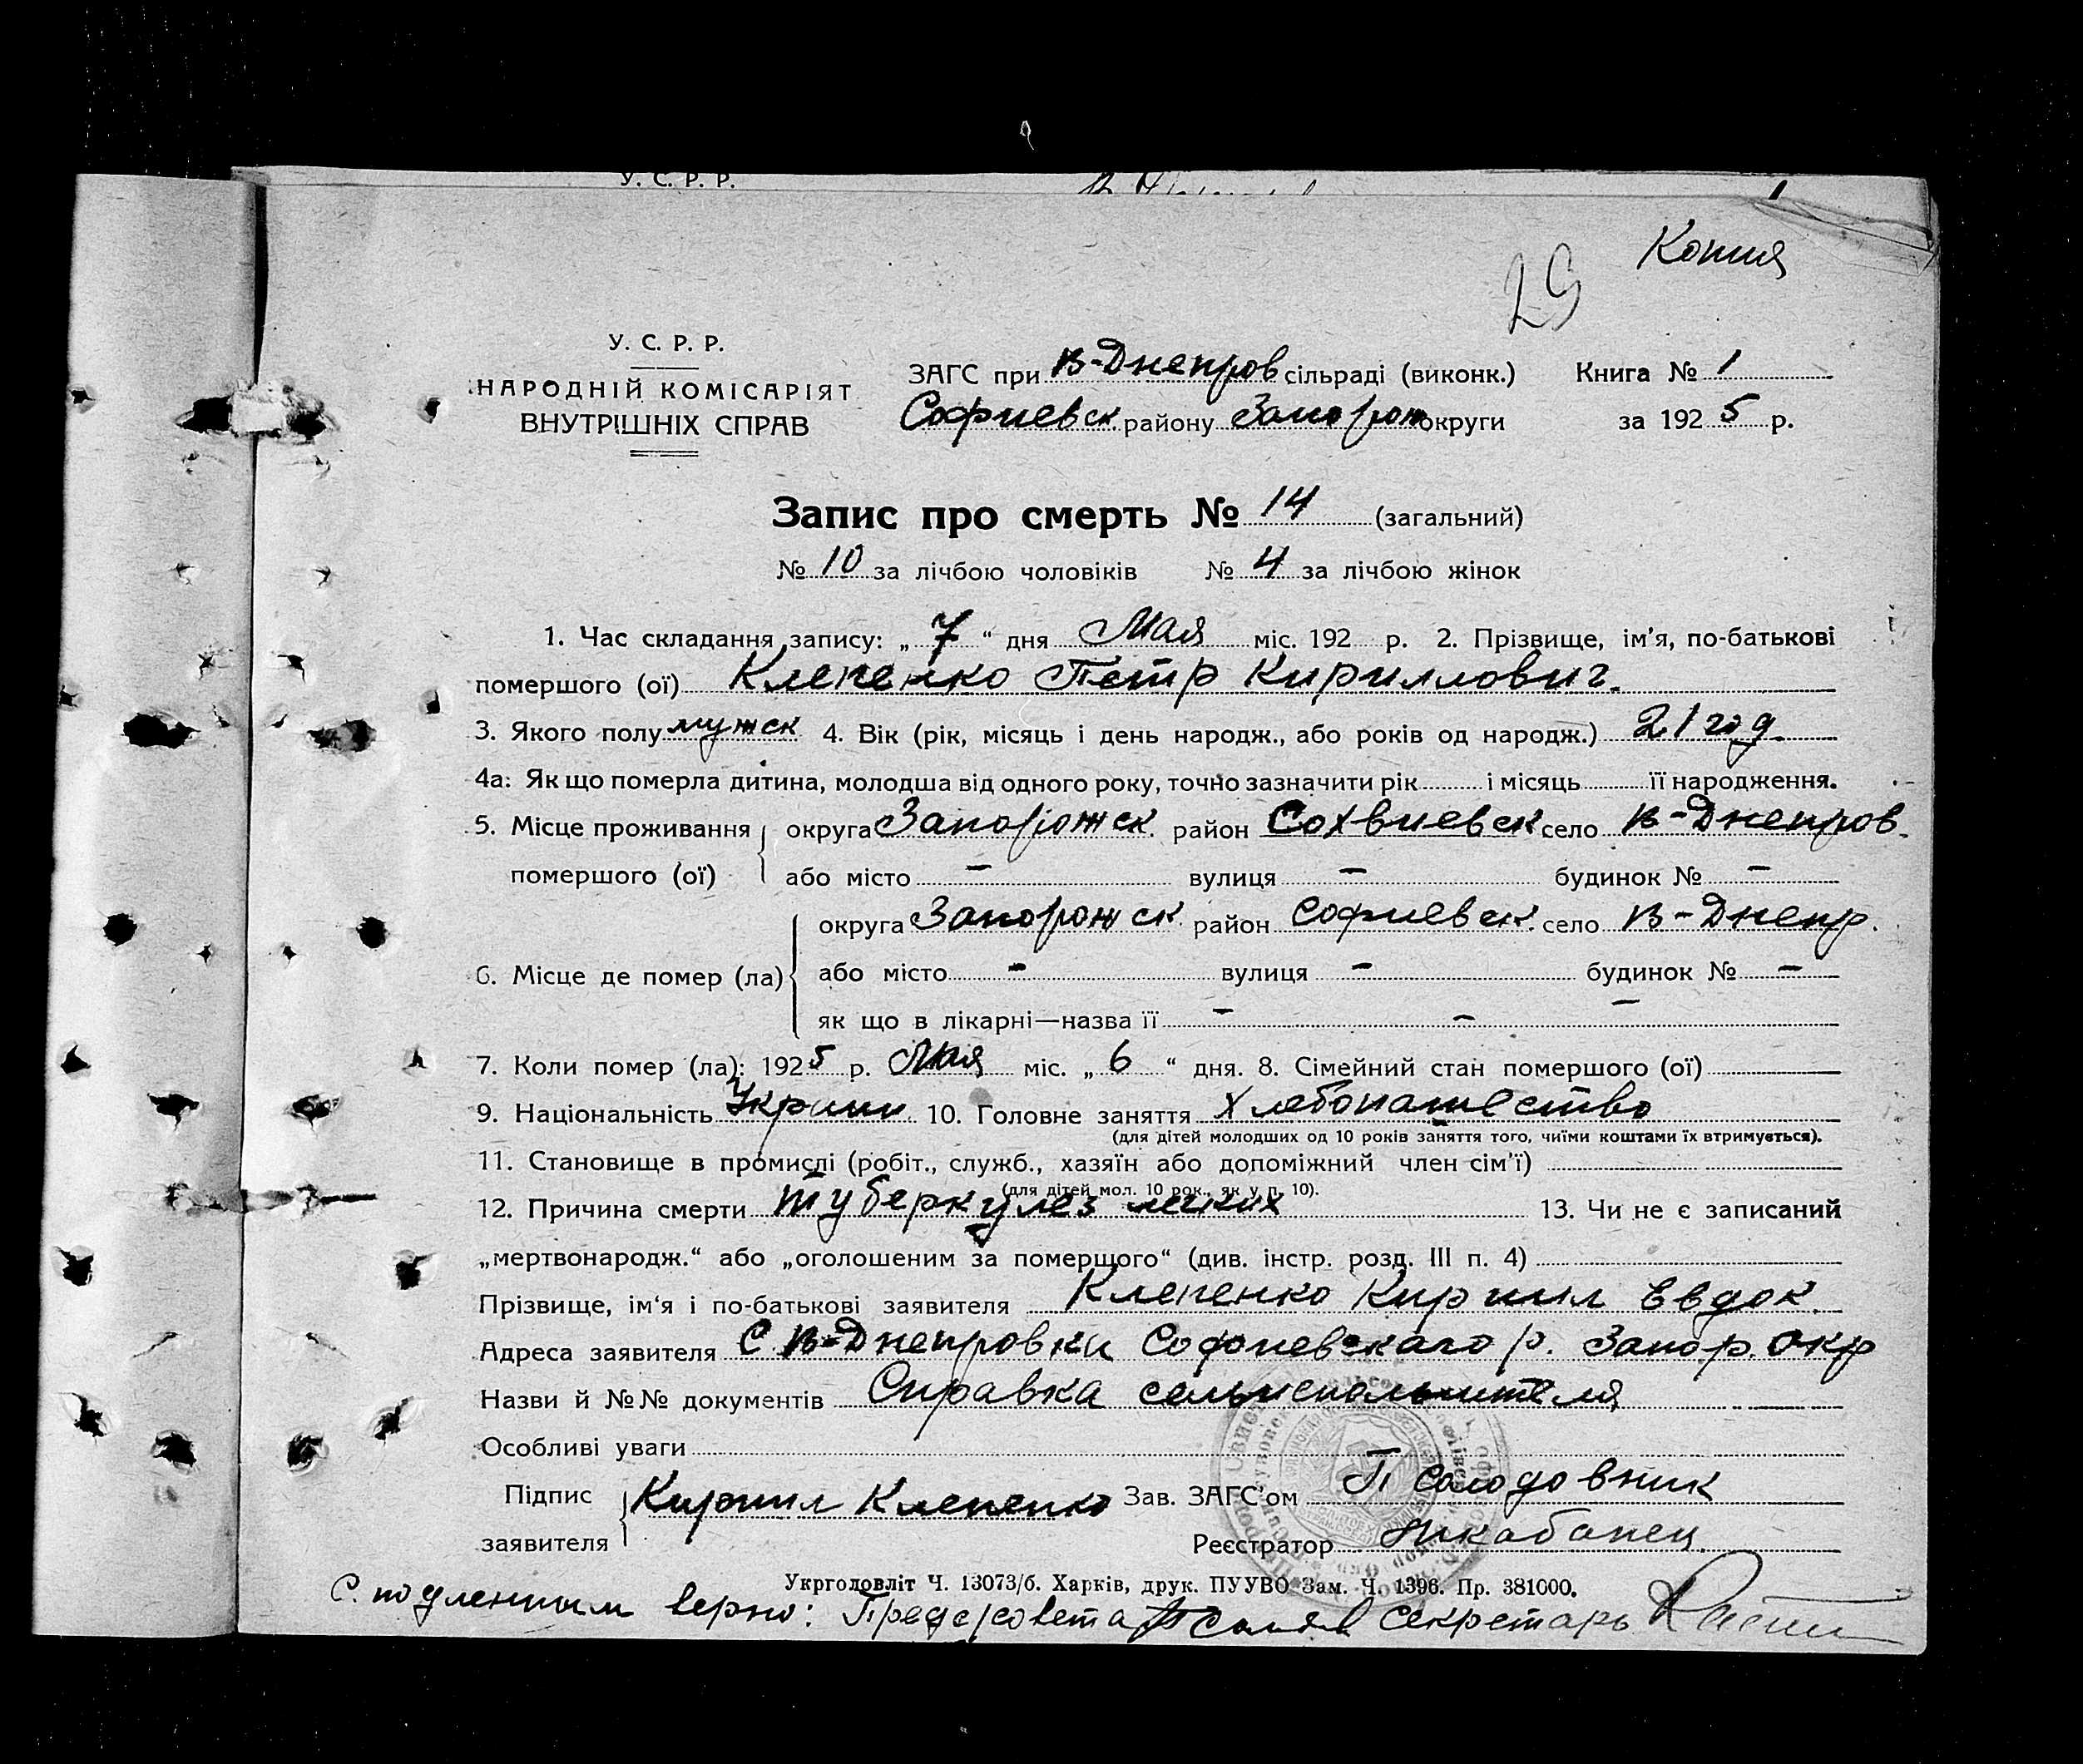 У. С. Р. Р.
Копия
29
У. С. Р. Р.
НАРОДНІЙ КОМІСАРІЯТ
ВНУТРІШНІХ СПРАВ
ЗАГС при В-Днепров сільраді (виконк.) Книга № 1
Софиевск. району Запорож округи за 1925 р.
Запис про смерть № 14 (загальний)
№ 10 за лічбою чоловіків № 4 за лічбою жінок
1. Час складання запису: „ 7 “ дня Мая міс. 192 р. 2. Прізвище, ім’я, по-батькові
помершого (ої) Клепенко Петр Кириллович.
3. Якого полу мужск 4. Вік (рік, місяць і день народж., або років од народж.) 21 год.
4а. Як що померла дитина, молодша від одного року, точно зазначити рік і місяць її народження.
5. Місце проживання округа Запорожск. район Сохвиевск село В-Днепров.
помершого (ої) або місто – вулиця – будинок № –
округа Запорожск. район Софиевск. село В-Днепр.
6. Місце де помер (ла) або місто – вулиця – будинок № –
як що в лікарні—назва її – – –
7. Коли помер (ла): 1925 р. Мая міс. „ 6 “ дня. 8. Сімейний стан помершого (ої)
9. Національність Украин 10. Головне заняття Хлебопашество
(для дітей молодших од 10 років заняття того, чиїми коштами їх втримується).
11. Становище в промислі (робіт., служб., хазяїн або допоміжний член сім’ї)
(для дітей мол. 10 рок., як у п. 10).
12. Причина смерти туберкулез легких 13. Чи не є записаний
„мертвонародж.“ або „оголошеним за померщого“ (див. інстр. розд. III п. 4)
Прізвище, ім‘я і по-батькові заявителя Клепенко Кирилл Евдок.
Адреса заявителя С. В-Днепровки Софиевскаго р. Запор. Окр
Назви й №№ документів Справка сельисполнителя
Особливі уваги
Підпис Кирилл Клепенко Зав. ЗАГС’ом П Солодовник
заявителя Реєстратор
Укрголовліт Ч. 13073/б. Харків, друк. ПУУВО Зам. Ч. 1396. Пр. 381000.
С подленным верно: Предс/совета Секретарь